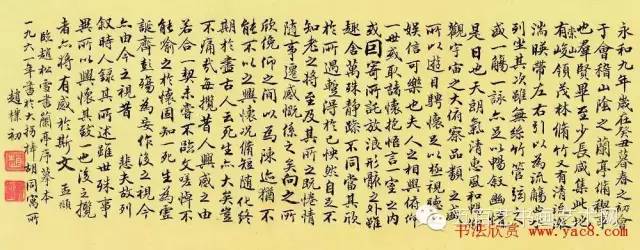 永和九年歲在癸丑暮春之初會
于會稽山陰之蘭亭脩稧事
也群賢畢至少長咸集此地
有峻領茂林脩竹又有清流激
湍暎帶左右引以為流觴
列坐其次雖無絲竹管弦
一觴一詠亦足以暢敘幽情
是日也天朗氣清惠風和暢
觀宇宙之大俯察品類之盛
所以遊目騁懷足以極視聽
娛信可樂也夫人之相與俯仰
一世或取諸懷抱悟言一室之內
或因寄所託放浪形骸之外雖
趣舍萬殊靜躁不同當其欣
於所遇蹔得於己快然自足不
知老之將至及其所之既惓情
隨事遷感慨係之矣向之所
欣俛仰之間以為陳迹猶不
能不以之興懷況脩短隨化終
期於盡古人云死生亦大矣豈
不痛哉每攬昔人興感之由
若合一契未嘗不臨文嗟悼不
能喻之於懷固知一死生為虛
誕齊彭殤為妄作後之視今
亦由今之視昔 悲夫故列
敘時人錄其所述雖世殊事
異所以興懷其致一也後之攬
者亦將有感於斯文 孟頫
臨趙松雪書蘭亭序摹本
一九六一年書於大拐棒胡同寓所
趙樸初
书法欣赏
yac8.com